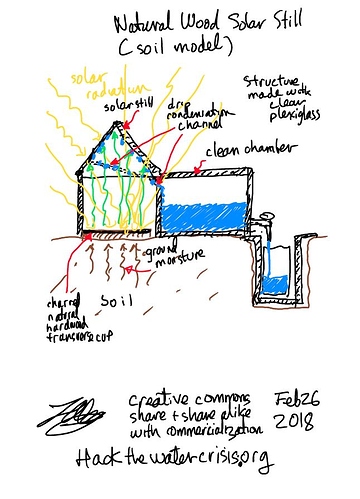 Natural Wood Solar Still
(soil model)
solar
radiation
solar still
drip
condensation
channel
structure
made with
clear
plexiglass
clean chamber
ground
moisture
soil
charred
natural
hardwood
transverse cup
creative commons
share + share alike
with commercialization
Feb 26
2018
Hackthewatercrisis.org